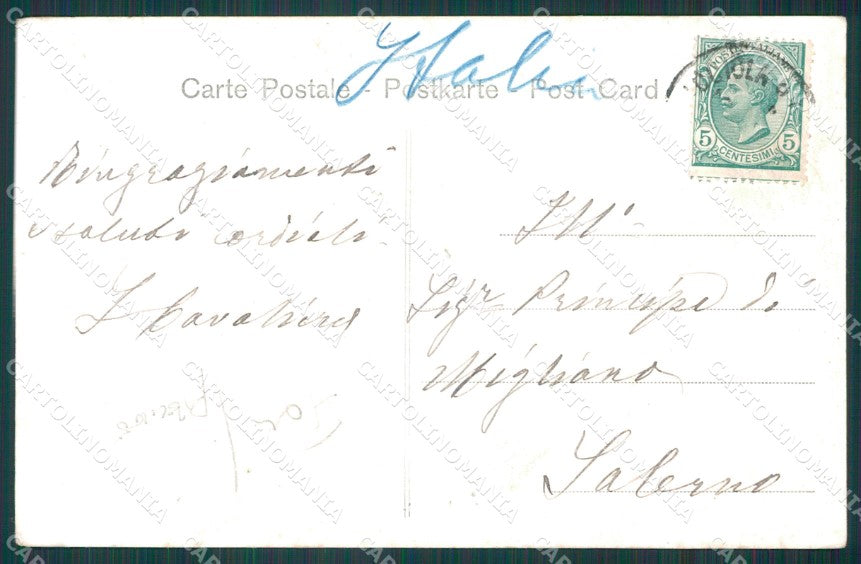 Italia
Carte Postale - Postkarte - Post Card
5 CENTESIMI 5
Ringraziamenti
saluti cordiali
Ill'
Sigr Principe di
Migliano
Salerno
CARTOLINOMANIA